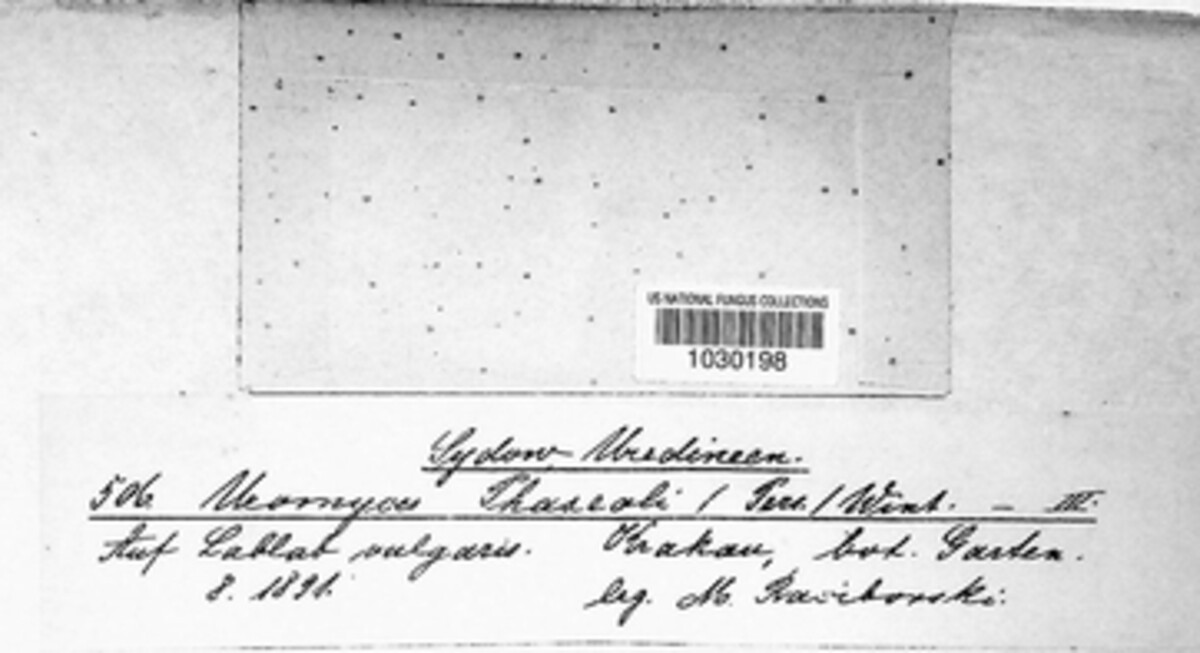 US NATIONAL FUNGUS COLLECTIONS
1030198
Sydow, Uredineen.
506. Uromyces Phaseoli /Pers./ Wint. – III.
Auf Lablab vulgaris. Krakau, bot. Garten.
8. 1891. leg. M. Raciborski.